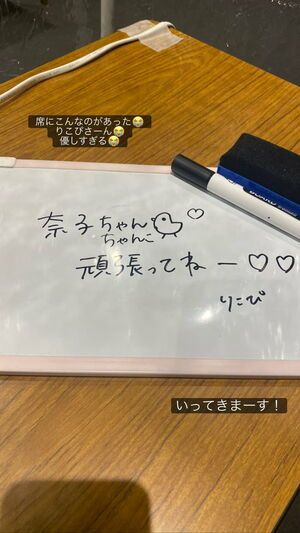 席にこんなのがあった😭
りこぴさーん😭
優しすぎる😭
奈子ちゃん♡
ちゃんこ
頑張ってねー♡♡
りこぴ
いってきまーす！